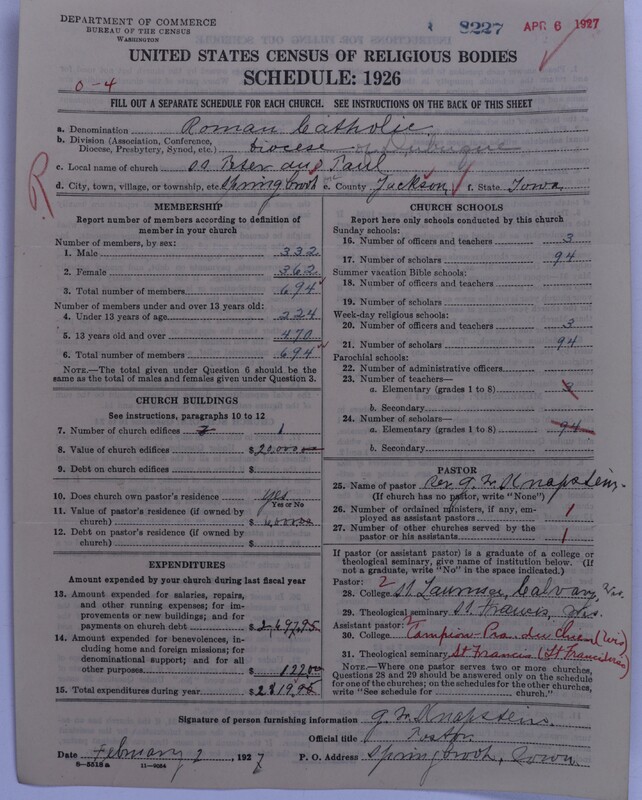 DEPARTMENT OF COMMERCE
BUREAU OF THE CENSUS
WASHINGTON
8227
APR 6 1927
UNITED STATES CENSUS OF RELIGIOUS BODIES
SCHEDULE: 1926
0-4
FILL OUT A SEPARATE SCHEDULE FOR EACH CHURCH. SEE INSTRUCTIONS ON THE BACK OF THIS SHEET
a. Denomination Roman Catholic
b. Division (Association, Conference, Diocese, Presbytery, Synod, etc.) Diocese of Dubuque
c. Local name of church SS Peter and Paul
d. City, town, village, or township, etc. Springbrook e. County Jackson f. State Iowa
R
MEMBERSHIP
Report number of members according to definition of
member in your church
Number of members, by sex:
1. Male 332
2. Female 362
3. Total number of members 694
Number of members under and over 13 years old:
4. Under 13 years of age 224
5. 13 years old and over 470
6. Total number of members 694
NOTE.—The total given under Question 6 should be
same as the total of males and females given under Question 3.
CHURCH BUILDINGS
See instructions, paragraphs 10 to 12
7. Number of church edifices 1
8. Value of church edifices $20,000.00
9. Debt on church edifices $
10. Does church own pastor's residence yes
Yes or No
11. Value of pastor's residence (if owned by
church) $ 6,000.00
12. Debt on pastor's residence (if owned by
church) $
EXPENDITURES
Amount expended by your church during last fiscal year
13. Amount expended for salaries, repairs,
and other running expenses; for im-
provements or new buildings; and for
payments on church debt $2,697.95
14. Amount expended for benevolences,
including home and foreign missions; for
denominational support; and for all
other purposes $ 122.00
15. Total expenditures during year $2819.95
CHURCH SCHOOLS
Report here only schools conducted by this church
Sunday schools:
16. Number of officers and teachers 3
17. Number of scholars 94
Summer vacation Bible schools:
18. Number of officers and teachers
19. Number of scholars
Week-day religious schools:
20. Number of officers and teachers 3
21. Number of scholars 94
Parochial schools:
22. Number of administrative officers
23. Number of teachers—
a. Elementary (grades 1 to 8) 3
b. Secondary
24. Number of scholars—
a. Elementary (grades 1 to 8) 94
b. Secondary
PASTOR
25. Name of pastor Rev. G. W. Knapstein.
(If church has no pastor, write "None")
26. Number of ordained ministers, if any, em-
ployed as assistant pastors 1
27. Number of other churches served by the
pastor or his assistants 1
If pastor (or assistant pastor) is a graduate of a college or
theological seminary, give name of institution below. (If
not a graduate, write "No" in the space indicated.)
Pastor: 2
28. College St Lawrence, Calvary, Wis.
29. Theological seminary St. Francis, Wis.
Assistant pastor:
30. College Campion-Pra. du Chien (Wis)
31. Theological seminary St Francis (St Francis Wis)
NOTE.—Where one pastor serves two or more churches,
Questions 28 and 29 should be answered only on the schedule
for one of the churches; on the schedules for the other churches,
write "See schedule for church."
Signature of person furnishing information G. W. Knapstein.
Official title Pastor
Date February 2, 1927 P. O. Address Springbrook, Iowa.
8-5518a 11-9684